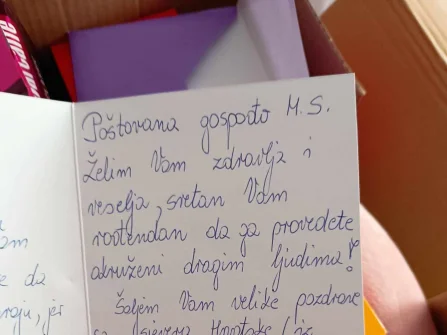 Poštovana gospođo M.S.
Želim Vam zdravlja i
veselja, sretan Vam
rođendan da ga provedete
okruženi dragim ljudima!
Šaljem Vam velike pozdrave
sa sjevera Hrvatske
am
e da